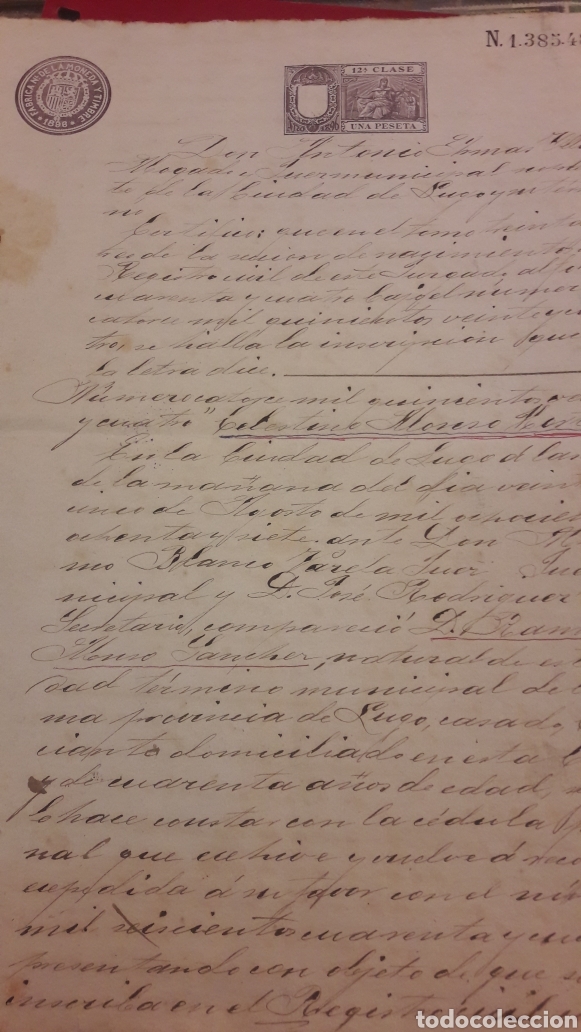 N. 1.385.48
FABRICA NL. DE LA MONEDA Y TIMBRE
1896
12ª CLASE
UNA PESETA
Don Antonio
Abogado Juez municipal
te de la Ciudad de Lugo y su tér
no
Certifico: que en el tomo treinta
de la sección de nacimientos
Registro civil de este Juzgado, al
cuarenta y cuatro bajo el número
catorce mil quinientos veinte y cua
tro, se halla la inscripción que
la letra dice.
Número catorce mil quinientos ve
y cuatro" Celestino Alonso
En la Ciudad de Lugo á las
de la mañana del dia veinte
cinco de Agosto de mil ochocien
ochenta y siete, ante Don
mo Blanco Varela Juez
nicipal y D. José Rodriguez
Secretario, compareció D. Ram
Alonso Sanchez, natural de esta
dad término municipal de
ma provincia de Lugo, casado,
ciante domiciliado en esta
y de cuarenta años de edad,
lo hace constar con la cédula p
nal que exhibe y vuelve á reco
expedida á su favor con el nú
mil seiscientos cuarenta y
presentando con objeto de que se
inscriba en el Registro civil
todocoleccion